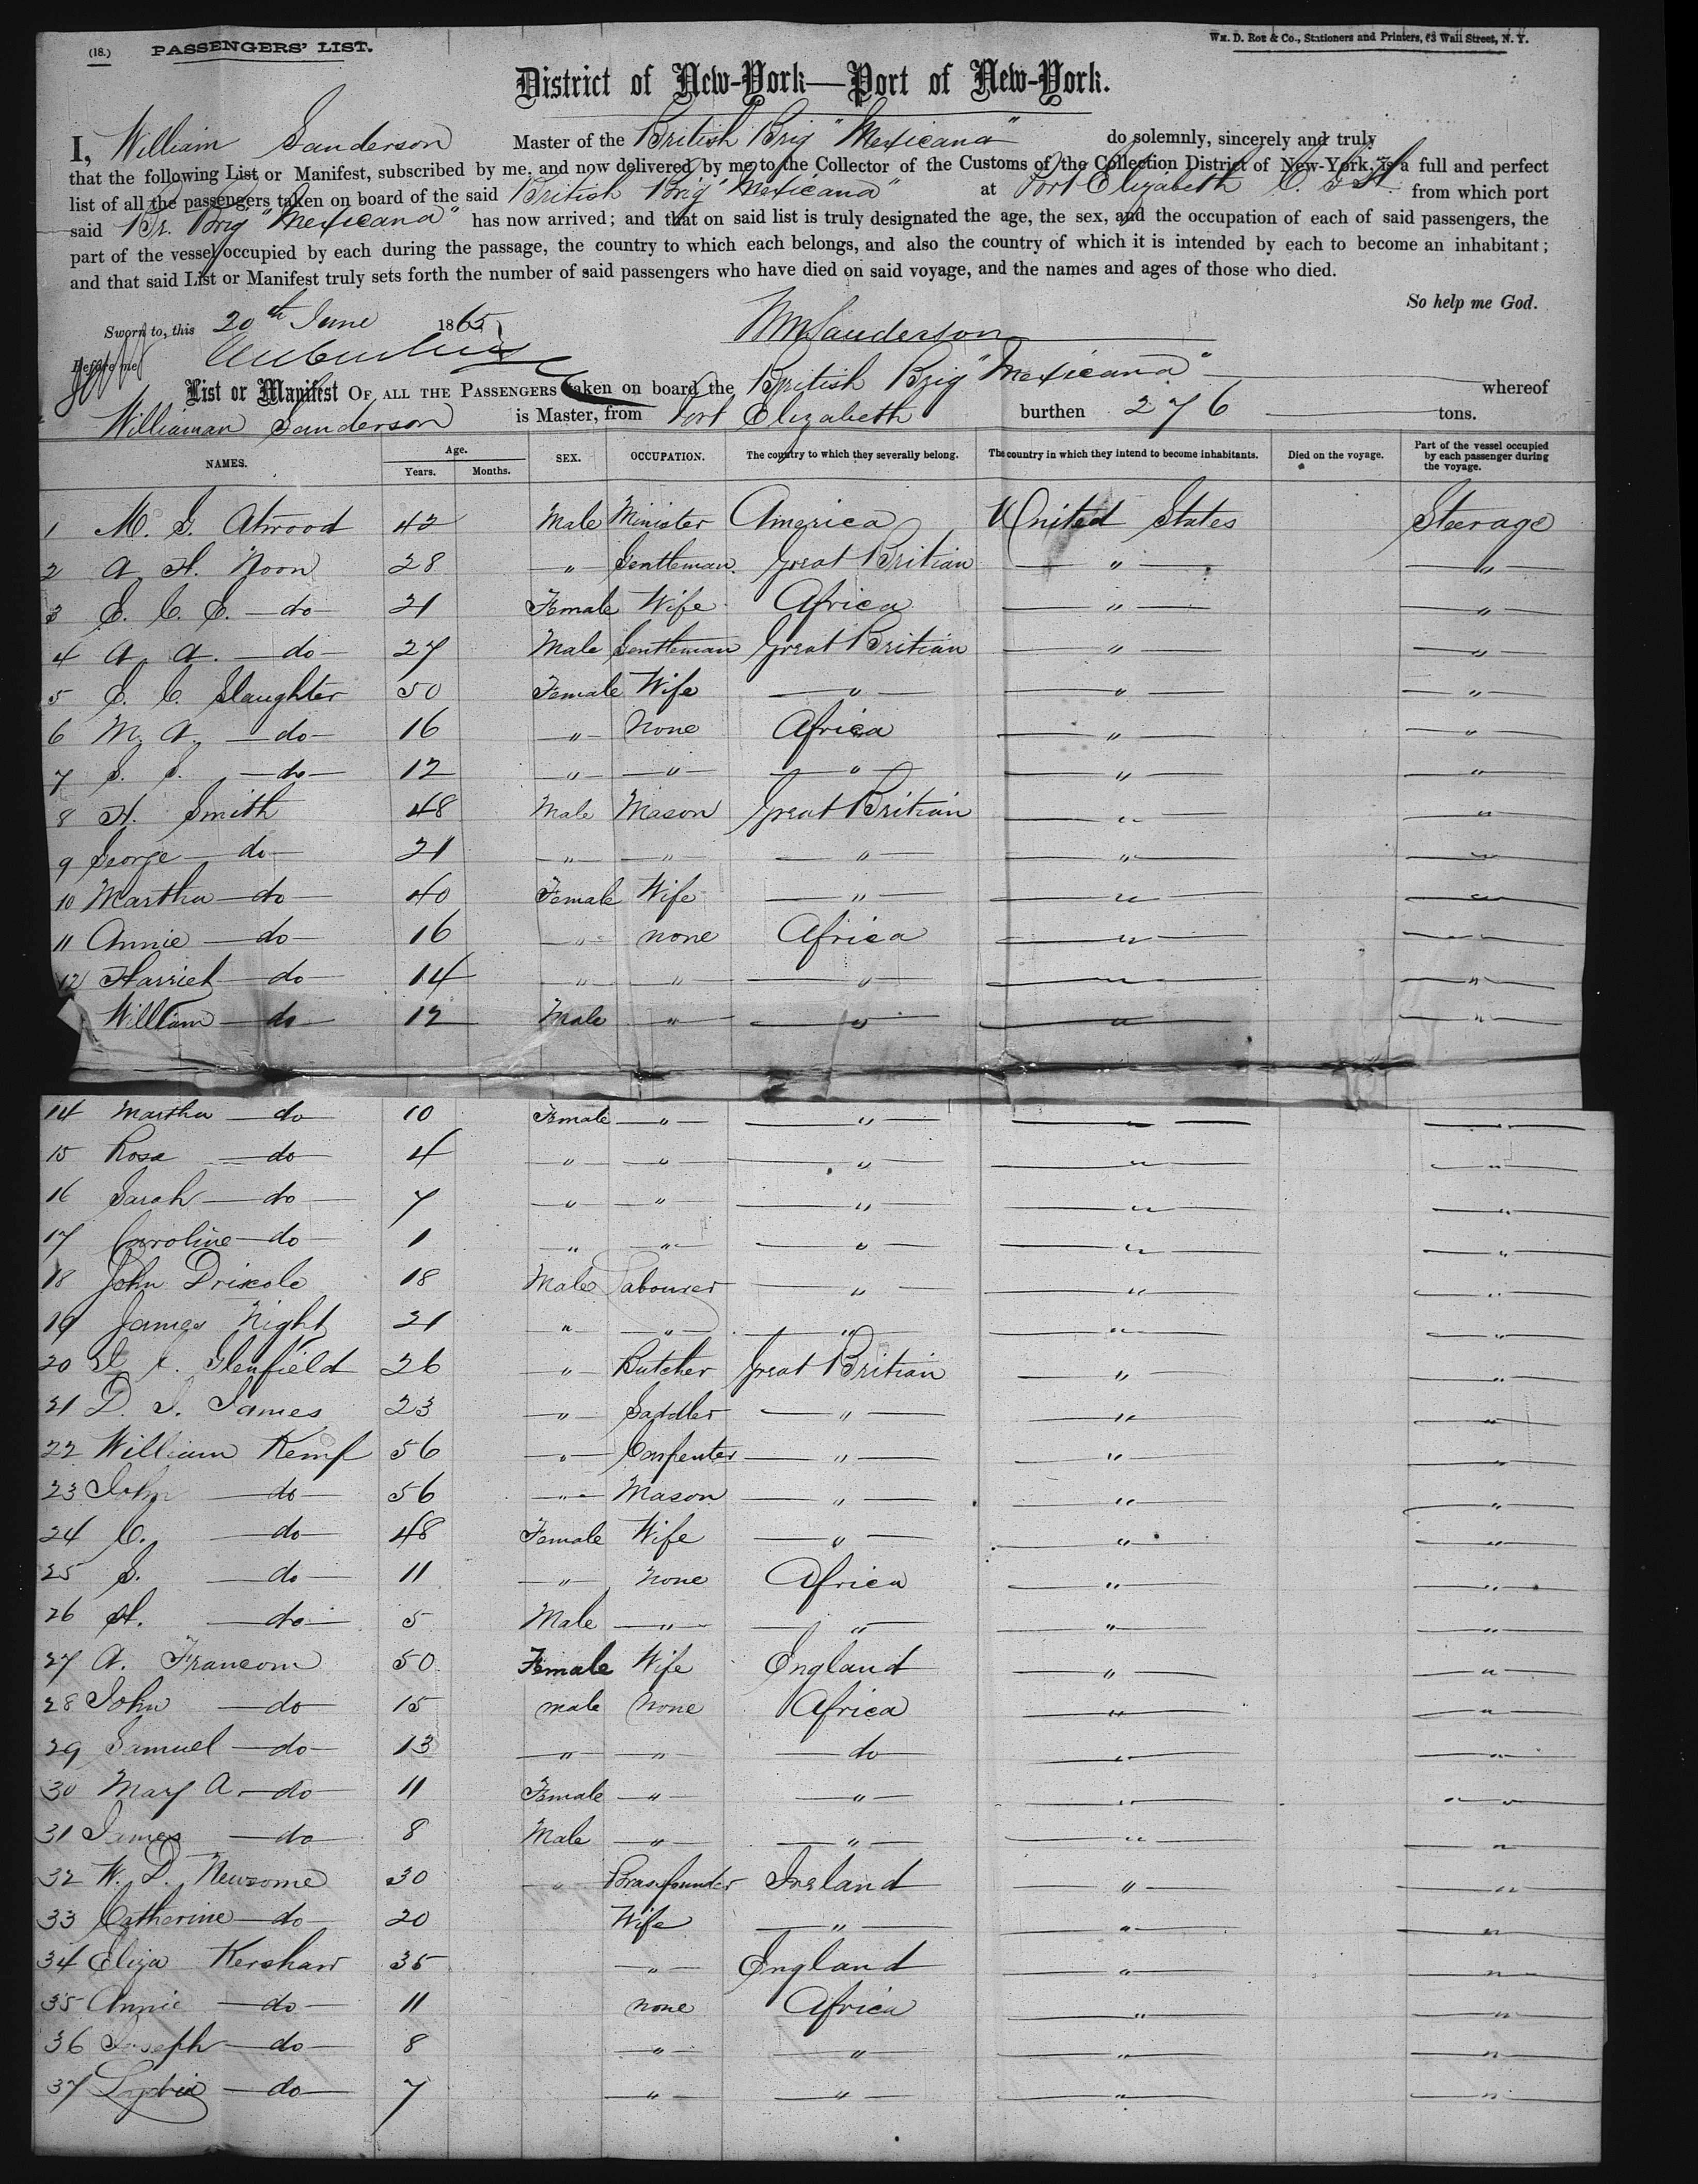 (18.) PASSENGERS' LIST. Wm. D. Roe & Co., Stationers and Printers, 63 Wall Street, N. Y.
District of New-York—Port of New-York.
I, William Sanderson Master of the British Brig "Mexicana" do solemnly, sincerely and truly
that the following List or Manifest, subscribed by me, and now delivered by me to the Collector of the Customs of the Collection District of New-York, is a full and perfect
list of all the passengers taken on board of the said British Brig "Mexicana" at Port Elizabeth from which port
said Br. Brig "Mexicana" has now arrived; and that on said list is truly designated the age, the sex, and the occupation of each of said passengers, the
part of the vessel occupied by each during the passage, the country to which each belongs, and also the country of which it is intended by each to become an inhabitant;
and that said List or Manifest truly sets forth the number of said passengers who have died on said voyage, and the names and ages of those who died.
So help me God.
Sworn to, this 20th June 1865 Wm Sanderson
Before me
List or Manifest OF ALL THE PASSENGERS taken on board the British Brig "Mexicana" whereof
Williaman Sanderson is Master, from Port Elizabeth burthen 276 tons.
NAMES. Age. Years. Months. SEX. OCCUPATION. The country to which they severally belong. The country in which they intend to become inhabitants. Died on the voyage. Part of the vessel occupied by each passenger during the voyage.
1 M. G. Atwood 42 Male Minister America United States Steerage
2 A. H. Noon 28 " Gentleman. Great Britian " "
3 E. C. E. do 21 Female Wife Africa " "
4 A. A. do 27 Male Gentleman Great Britian " "
5 C. C. Slaughter 50 Female Wife " " "
6 M. A. do 16 " None Africa " "
7 S. S. do 12 " " " " "
8 H. Smith 48 Male Mason Great Britian " "
9 George do 21 " " " " "
10 Martha do 40 Female Wife " " "
11 Annie do 16 " none Africa " "
12 Harriet do 14 " " " " "
William do 12 Male " " " "
14 Martha do 10 Female " " " "
15 Rosa do 4 " " " " "
16 Sarah do 7 " " " " "
17 Caroline do 1 " " " " "
18 John Driscole 18 Male Labourer " " "
19 James Night 21 " " " " "
20 Glenfield 26 " Butcher Great Britian " "
21 D. J. James 23 " Saddler " " "
22 William Kemp 56 " Carpenter " " "
23 John do 56 " Mason " " "
24 C. do 48 Female Wife " " "
25 S. do 11 " None Africa " "
26 H. do 5 Male " " " "
27 A. Francom 50 Female Wife England " "
28 John do 15 male None Africa " "
29 Samuel do 13 " " do " "
30 Mary A. do 11 Female " " " "
31 James do 8 Male " " " "
32 W. D. Newsome 30 " Brassfounder Ireland " "
33 Catherine do 20 Wife " " "
34 Eliza Kershaw 35 " England " "
35 Annie do 11 none Africa " "
36 Joseph do 8 " " " "
37 Lydia do 7 " " " "